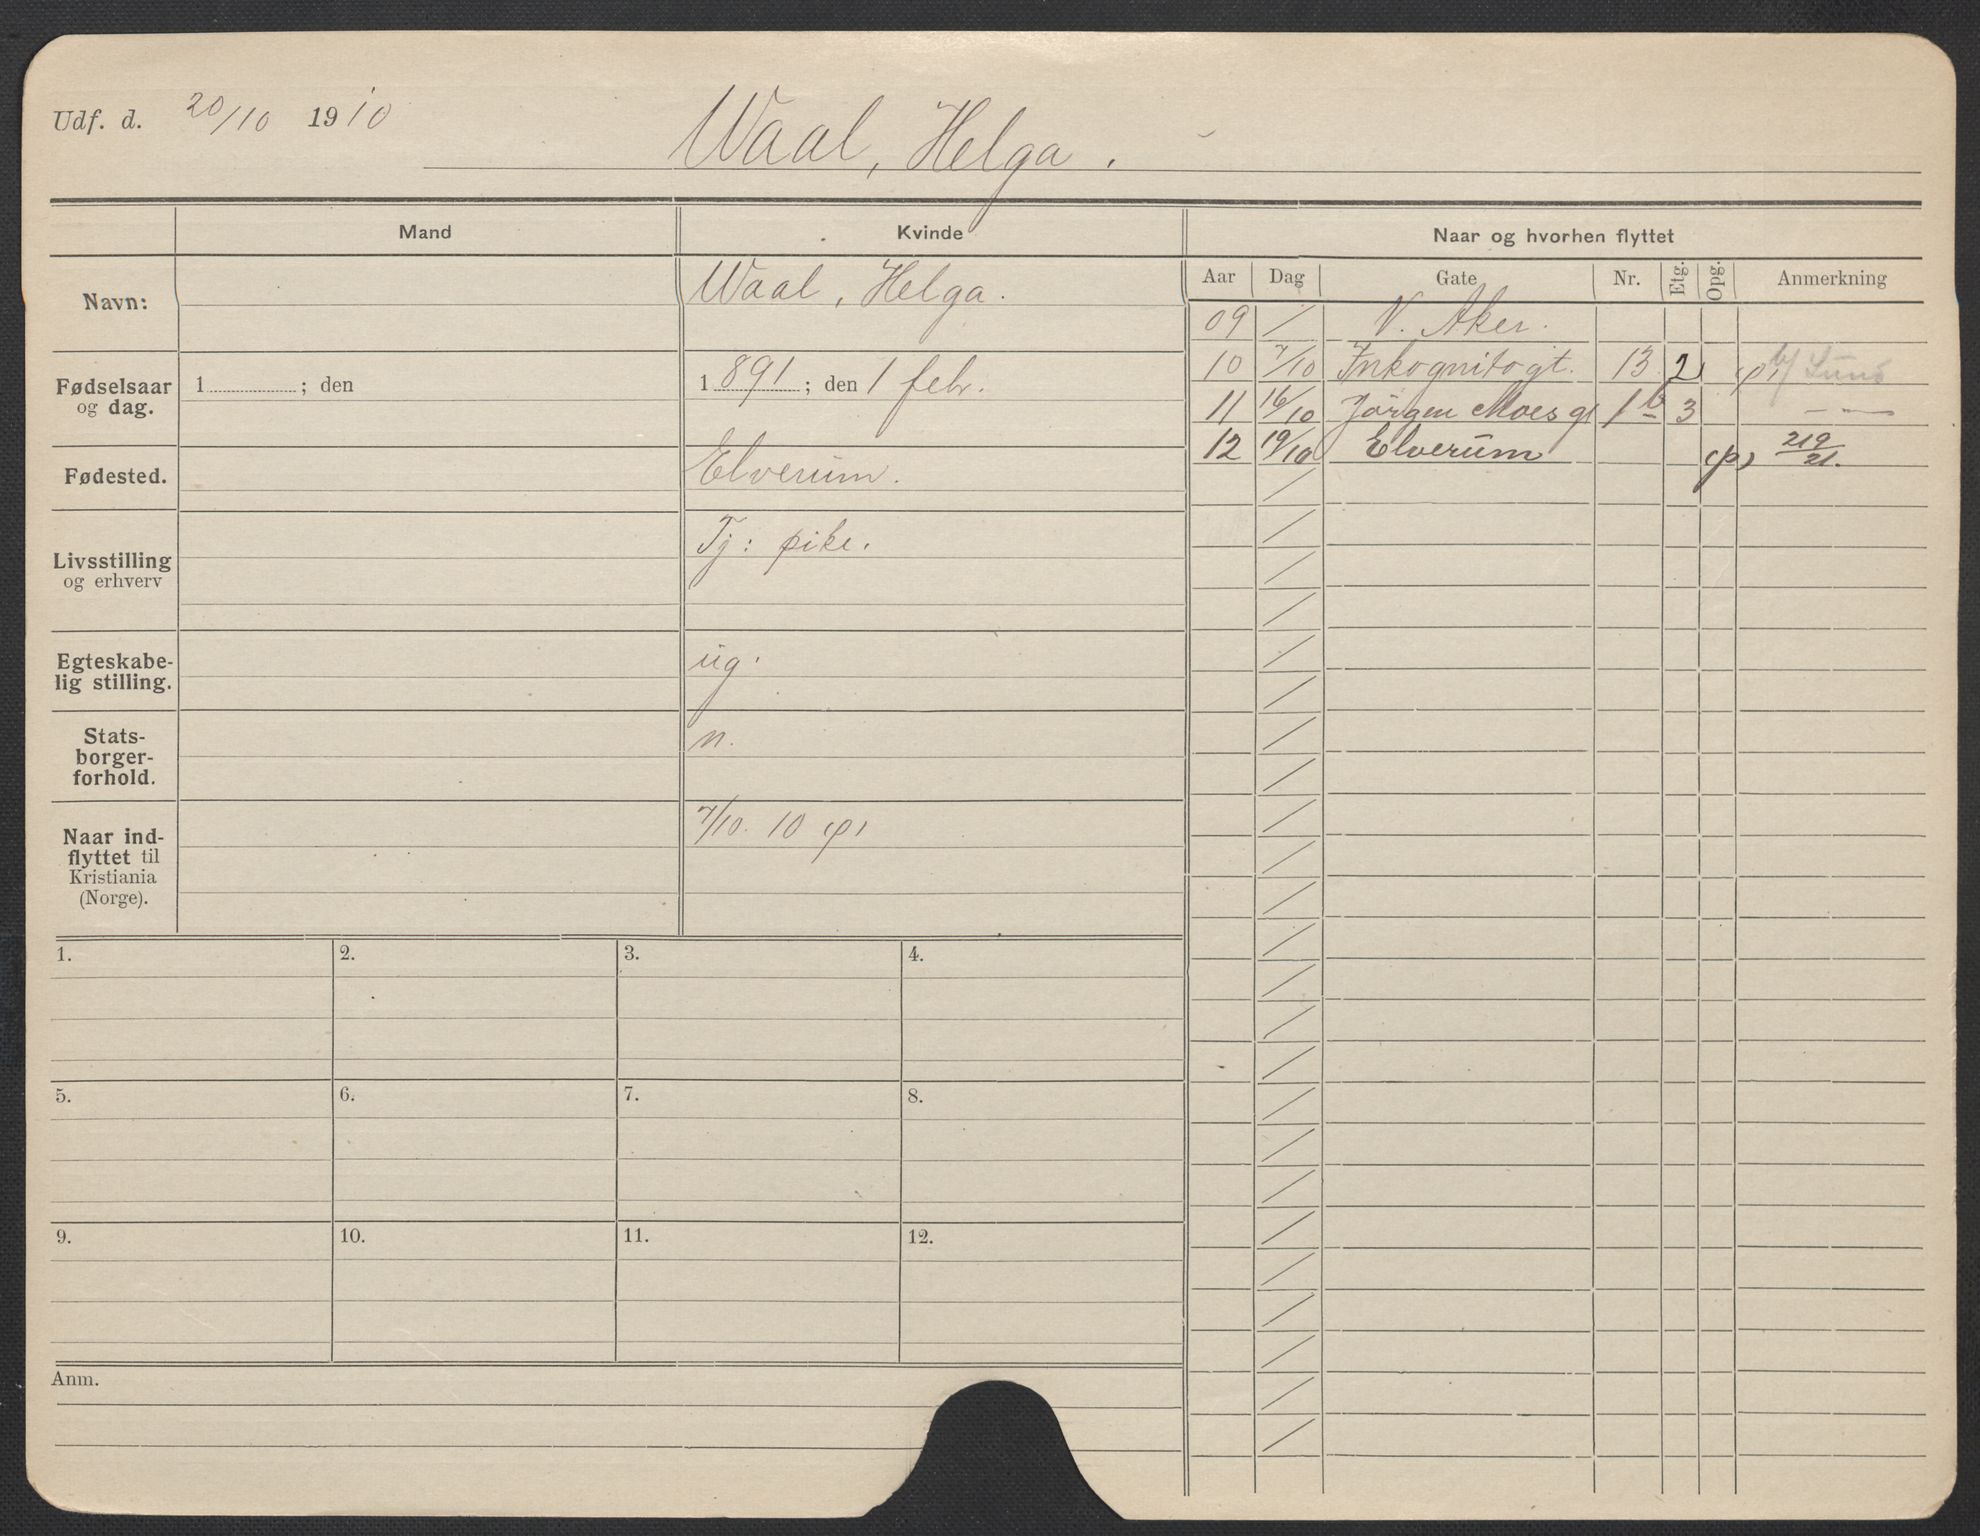 Udf. d. 20/10 1910
Waal, Helga.
Mand
Kvinde
Naar og hvorhen flyttet
Navn:
Waal, Helga.
Fødselsaar og dag.
1 ; den
1 891 ; den 1 febr.
Fødested.
Elverum.
Livsstilling og erhverv
Tj: pike.
Egteskabe-
lig stilling.
ug.
Stats-
borger-
forhold.
n.
Naar ind-
flyttet til
Kristiania
(Norge).
7/10. 10 (p)
Aar Dag Gate Nr. Etg. Opg. Anmerkning
09 / V. Aker.
10 7/10 Inkognitogt. 13 2 (p)
11 16/10 Jørgen Moesg 1b 3 — —
12 19/10 Elverum (p) 219/21.
1. 2. 3. 4.
5. 6. 7. 8.
9. 10. 11. 12.
Anm.